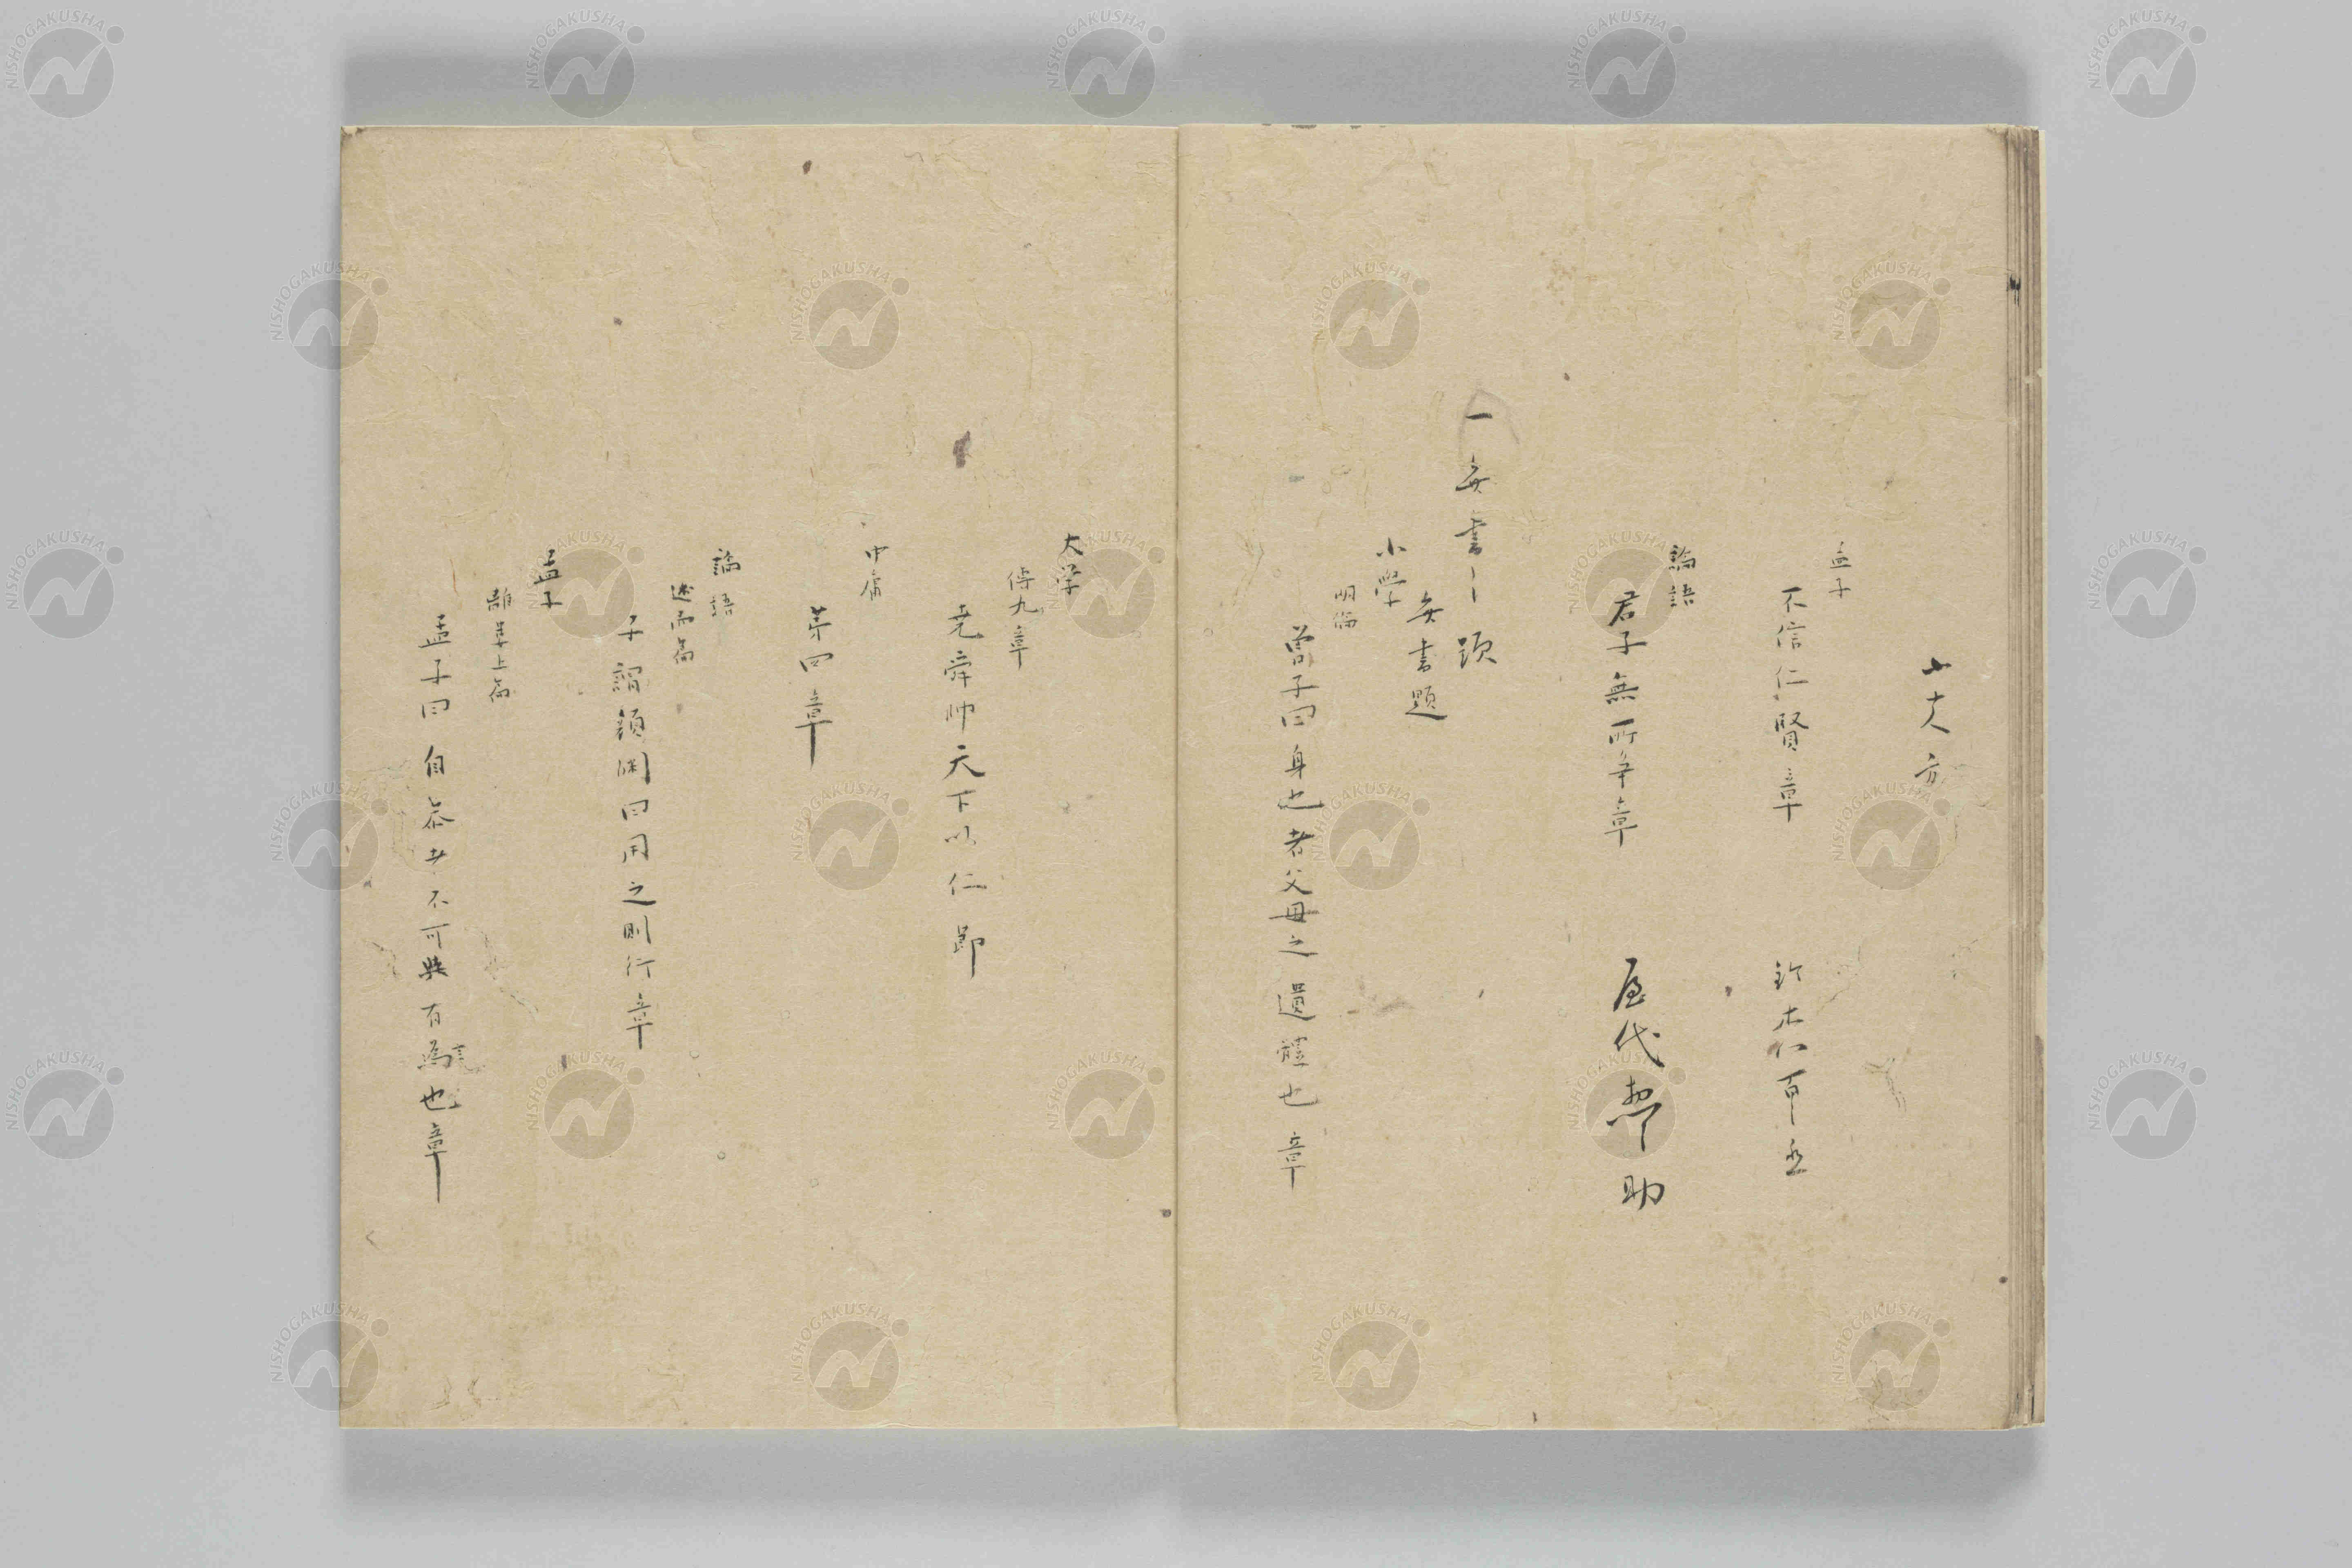 孟子
不信仁賢章
論語
君子無所争章
屋代
助
小學
明倫
曽子曰身也者父母之遺體也章
大学
傳九章
尭舜帥天下以仁節
中庸
苐四章
論語
述而篇
子謂顔渕曰用之則行章
孟子
離婁上篇
孟子曰自暴者不可與有為也章
NISHOGAKUSHA